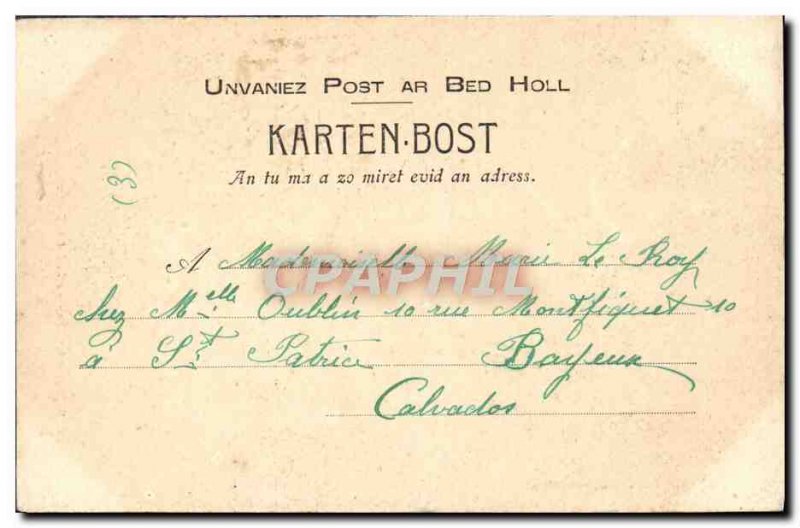 UNVANIEZ POST AR BED HOLL
KARTEN-BOST
An tu ma a zo miret evid an adress.
(3)
A Mademoiselle Marie Le Roy
CPAPHIL
chez Melle Oublin 10 rue Montfiquet 10
à St Patrice Bayeux
Calvados